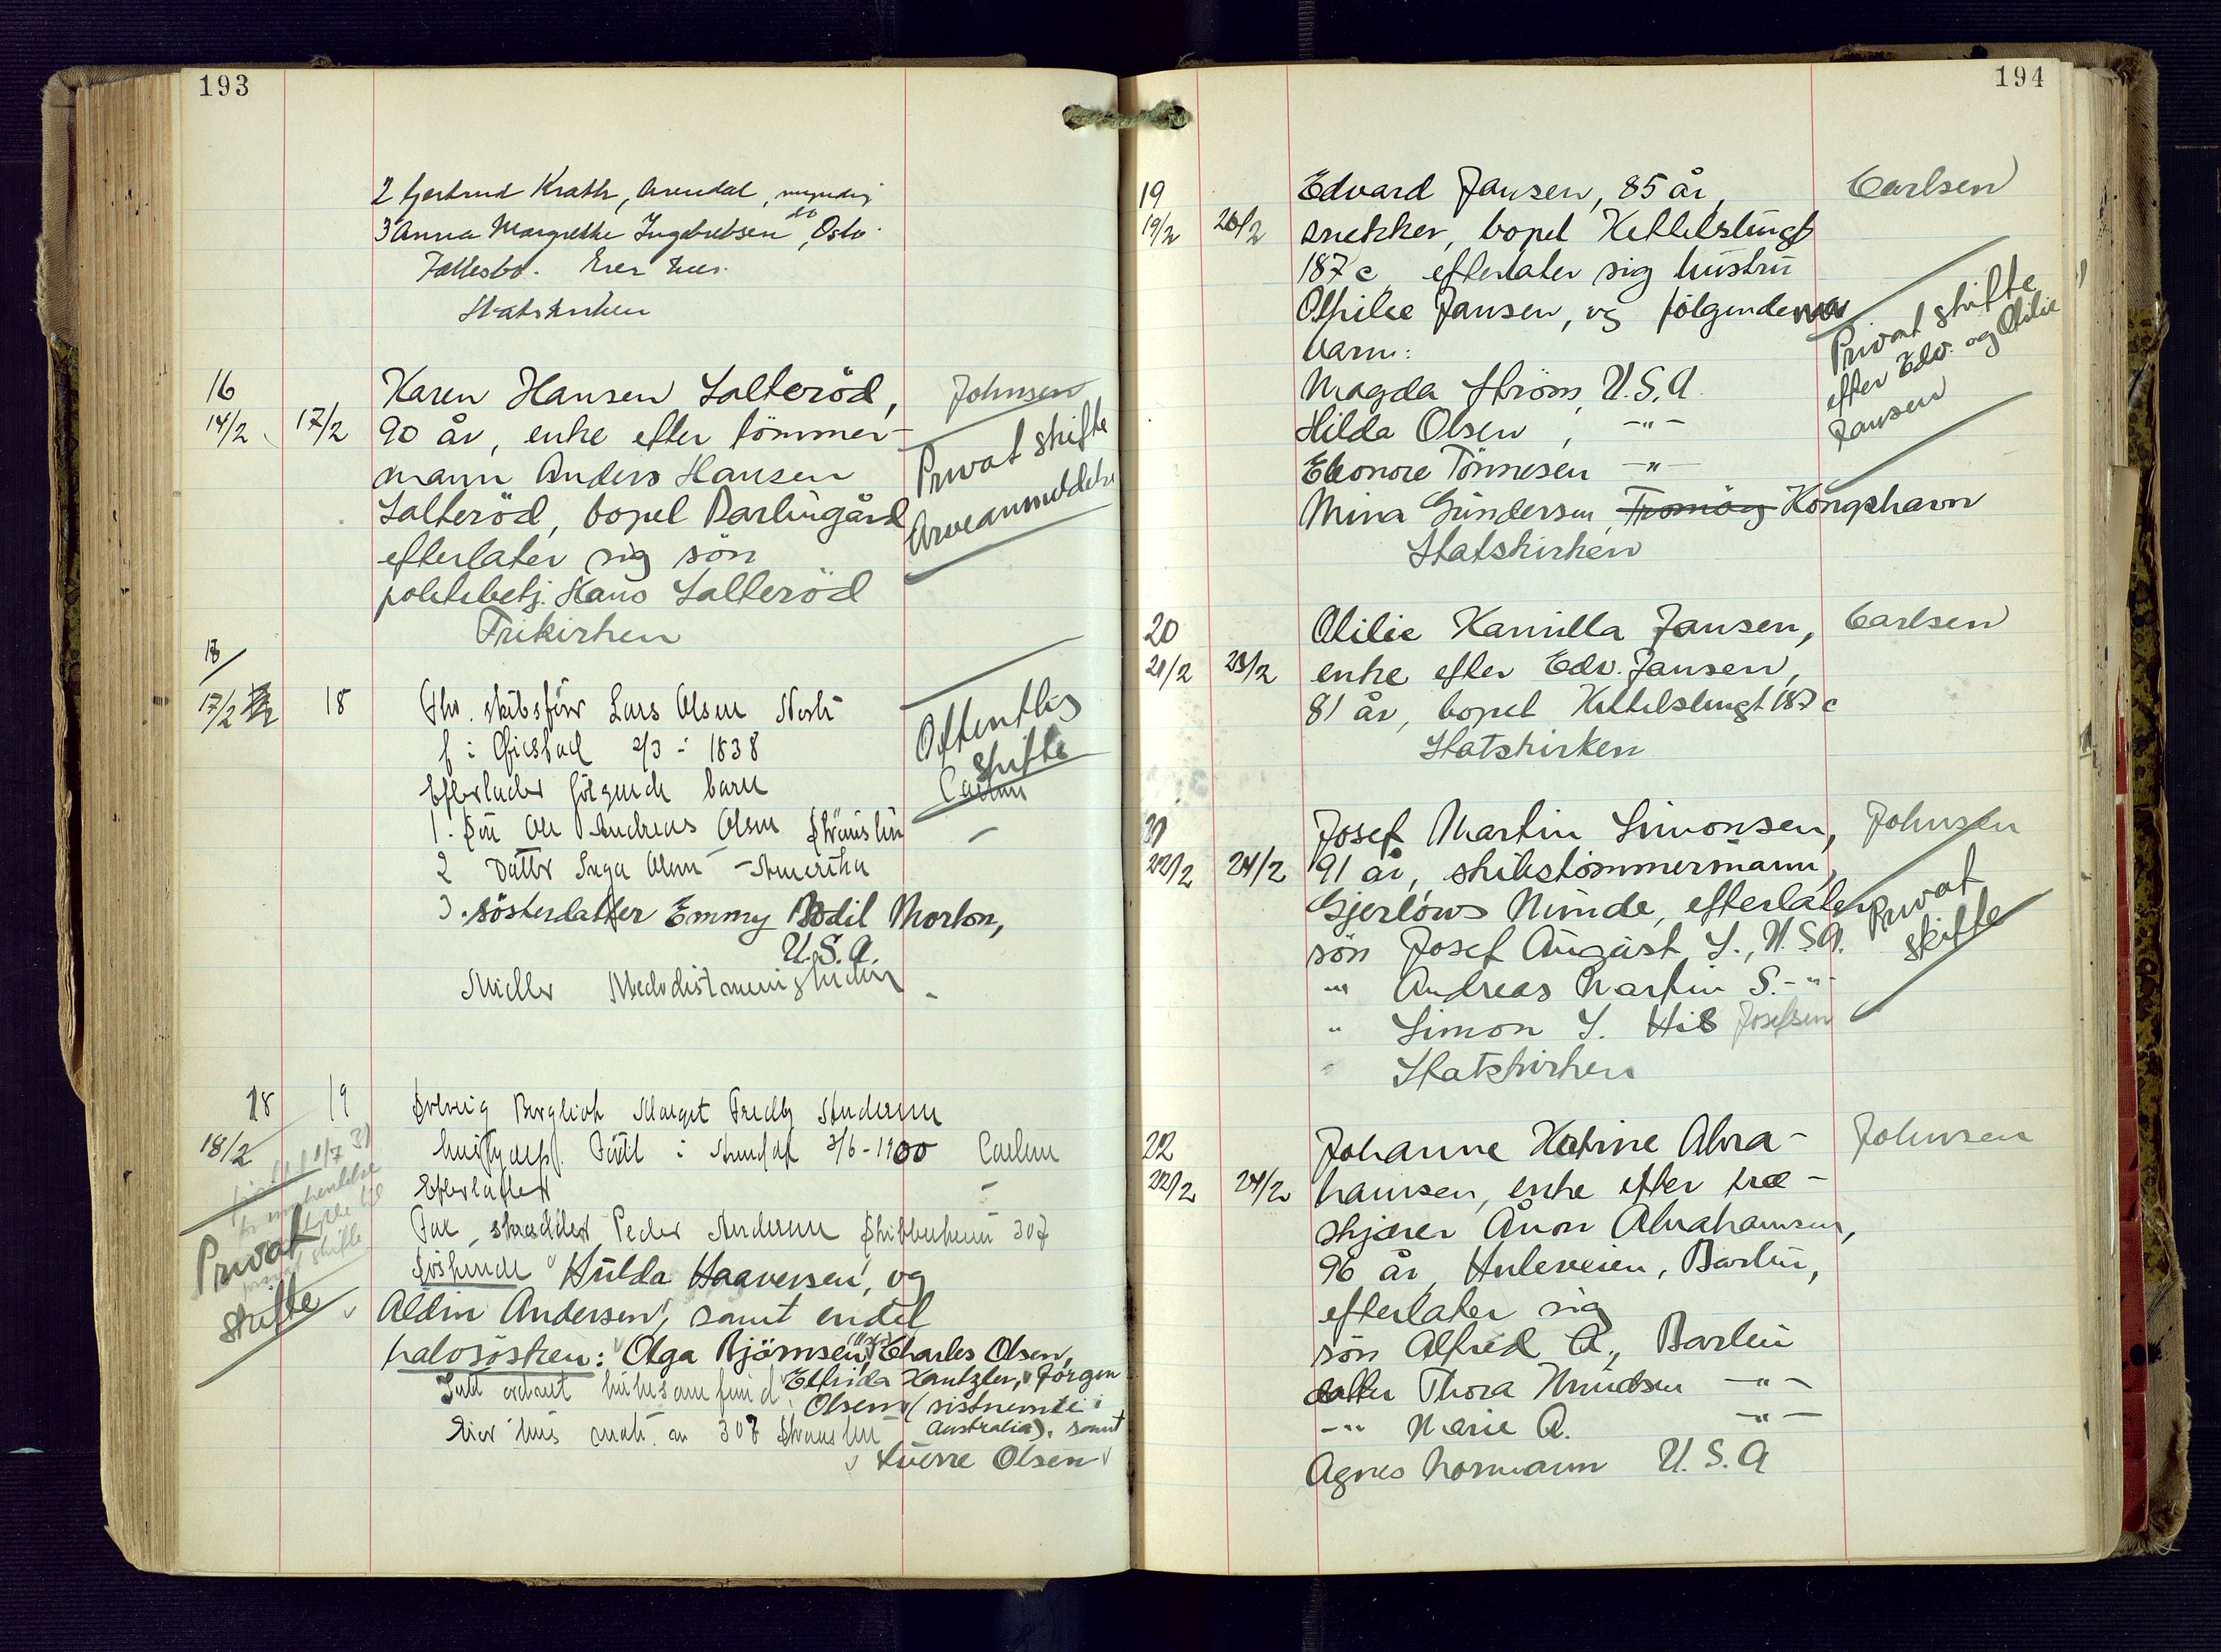 193
2 Gjertrud Krath, Arendal, myndig
3 Anna Margrethe Ingebretsen, do Oslo
Fællesbo. Eier hus.
Statskirken
16
14/2 17/2
Karen Hansen Salteröd,
90 år, enke efter tömmer-
mann Anders Hansen
Salteröd, bopel Barbugård
efterlater sig sön
politibetj. Hans Salteröd
Frikirken
Johnsen
Privat skifte
Arveanmeldelse
17/2 18
fhv. skibsförer Lars Olsen
f i 2/3 - 1838
Efterlader følgende barn
1. Ole Andreas Olsen
2 Datter Inga Olsen - Amerika
3. sösterdatter Emmy Bodil Morton,
U.S.A.
Offentlig
skifte
Carlsen
18 19
18/2
Solveig Bergliot Margot Andersen
Född i 3/6 - 1900
Carlsen
Efterlader
Far, skrædder Peder Andersen 307
Söskende Hulda Haaversen, og
Aldin Andersen, samt endel
halvsösken: Olga Björnsen, Charles Olsen,
Elfrida Kantzler, Jörgen
Olsen (sistnemte i
Australia), samt
Sverre Olsen
Eier hus matr. nr 307
Privat
skifte
194
19
19/2 26/2
Edvard Jansen, 85 år,
snekker, bopel Kittelsbugt
187 c, efterlater sig hustru
Othilie Jansen, og følgende
barn:
Magda Ström, U.S.A.
Hilda Olsen, -"-
Eleonore Tönnesen -"-
Mina Gundersen, Tromöy Kongshavn
Statskirken
Carlsen
Privat skifte
efter Edv. og Otilie
Jansen
20
21/2 23/2
Otilie Kamilla Jansen,
enke efter Edv. Jansen,
81 år, bopel Kittelsbugt 187 c
Statskirken
Carlsen
22/2 24/2
Josef Martin Simonsen,
91 år, skibstömmermann,
Gjerlöws Minde, efterlater
sön Josef August S., U.S.A.
-"- Andreas Martin S. -"-
" Simon S. His Josefsen
Statskirken
Johnsen
Privat
skifte
22
22/2 24/2
Johanne Katrine Abra-
hamsen, enke efter træ-
skjærer Ånon Abrahamsen,
96 år, Huleveien, Barbu,
efterlater sig
sön Alfred A., Barbu
datter Thora Knudsen -"-
-"- Marie A. -"-
Agnes Normann U.S.A
Johnsen